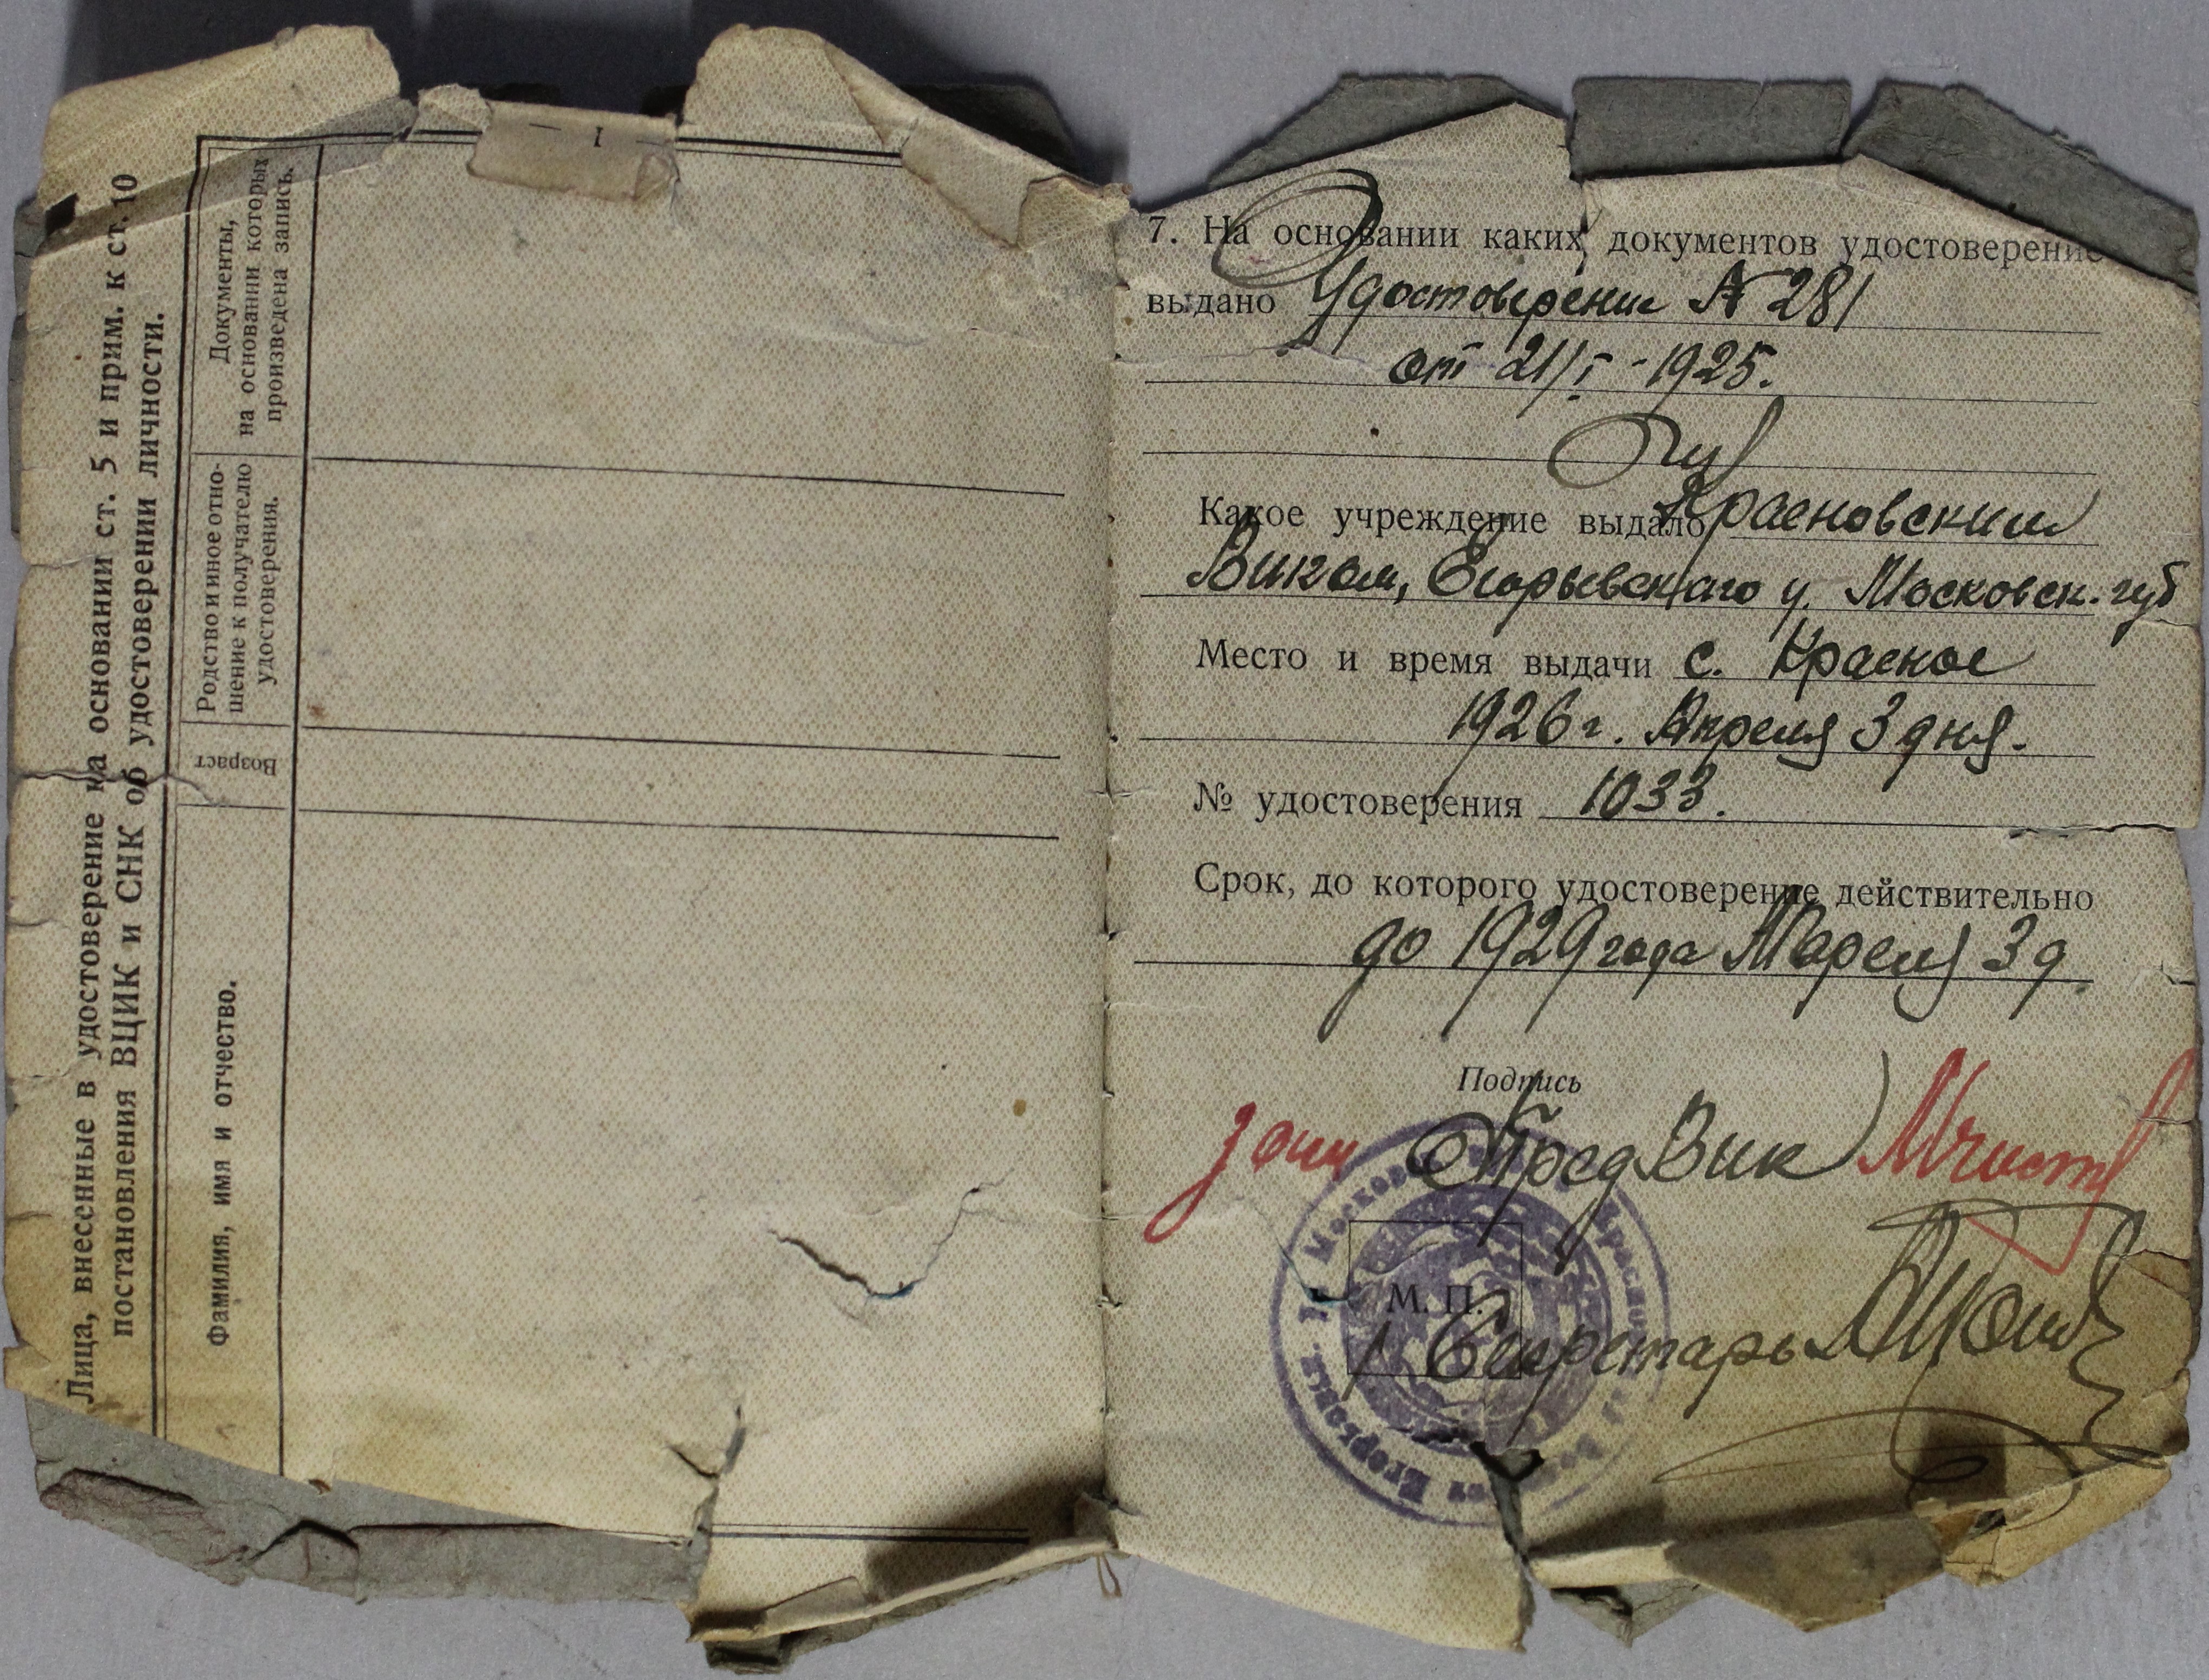 Лица, внесенные в удостоверение на основании ст. 5 и прим. к ст. 10
постановления ВЦИК и СНК об удостоверении личности.
Фамилия, имя и отчество.
Возраст
Родство и иное отно-
шение к получателю
удостоверения.
Документы,
на основании которых
произведена запись.
7. На основании каких документов удостоверение
выдано Удостоверение № 281
от 21/I - 1925.
Какое учреждение выдало Красновским
Виком, Егорьевского у. Московск. губ
Место и время выдачи с. Красное
1926 г. Апреля 3 дня.
№ удостоверения 1033.
Срок, до которого удостоверение действительно
до 1929 года Апреля 3 д.
Подпись
Пред Вик
М. П.
Секретарь